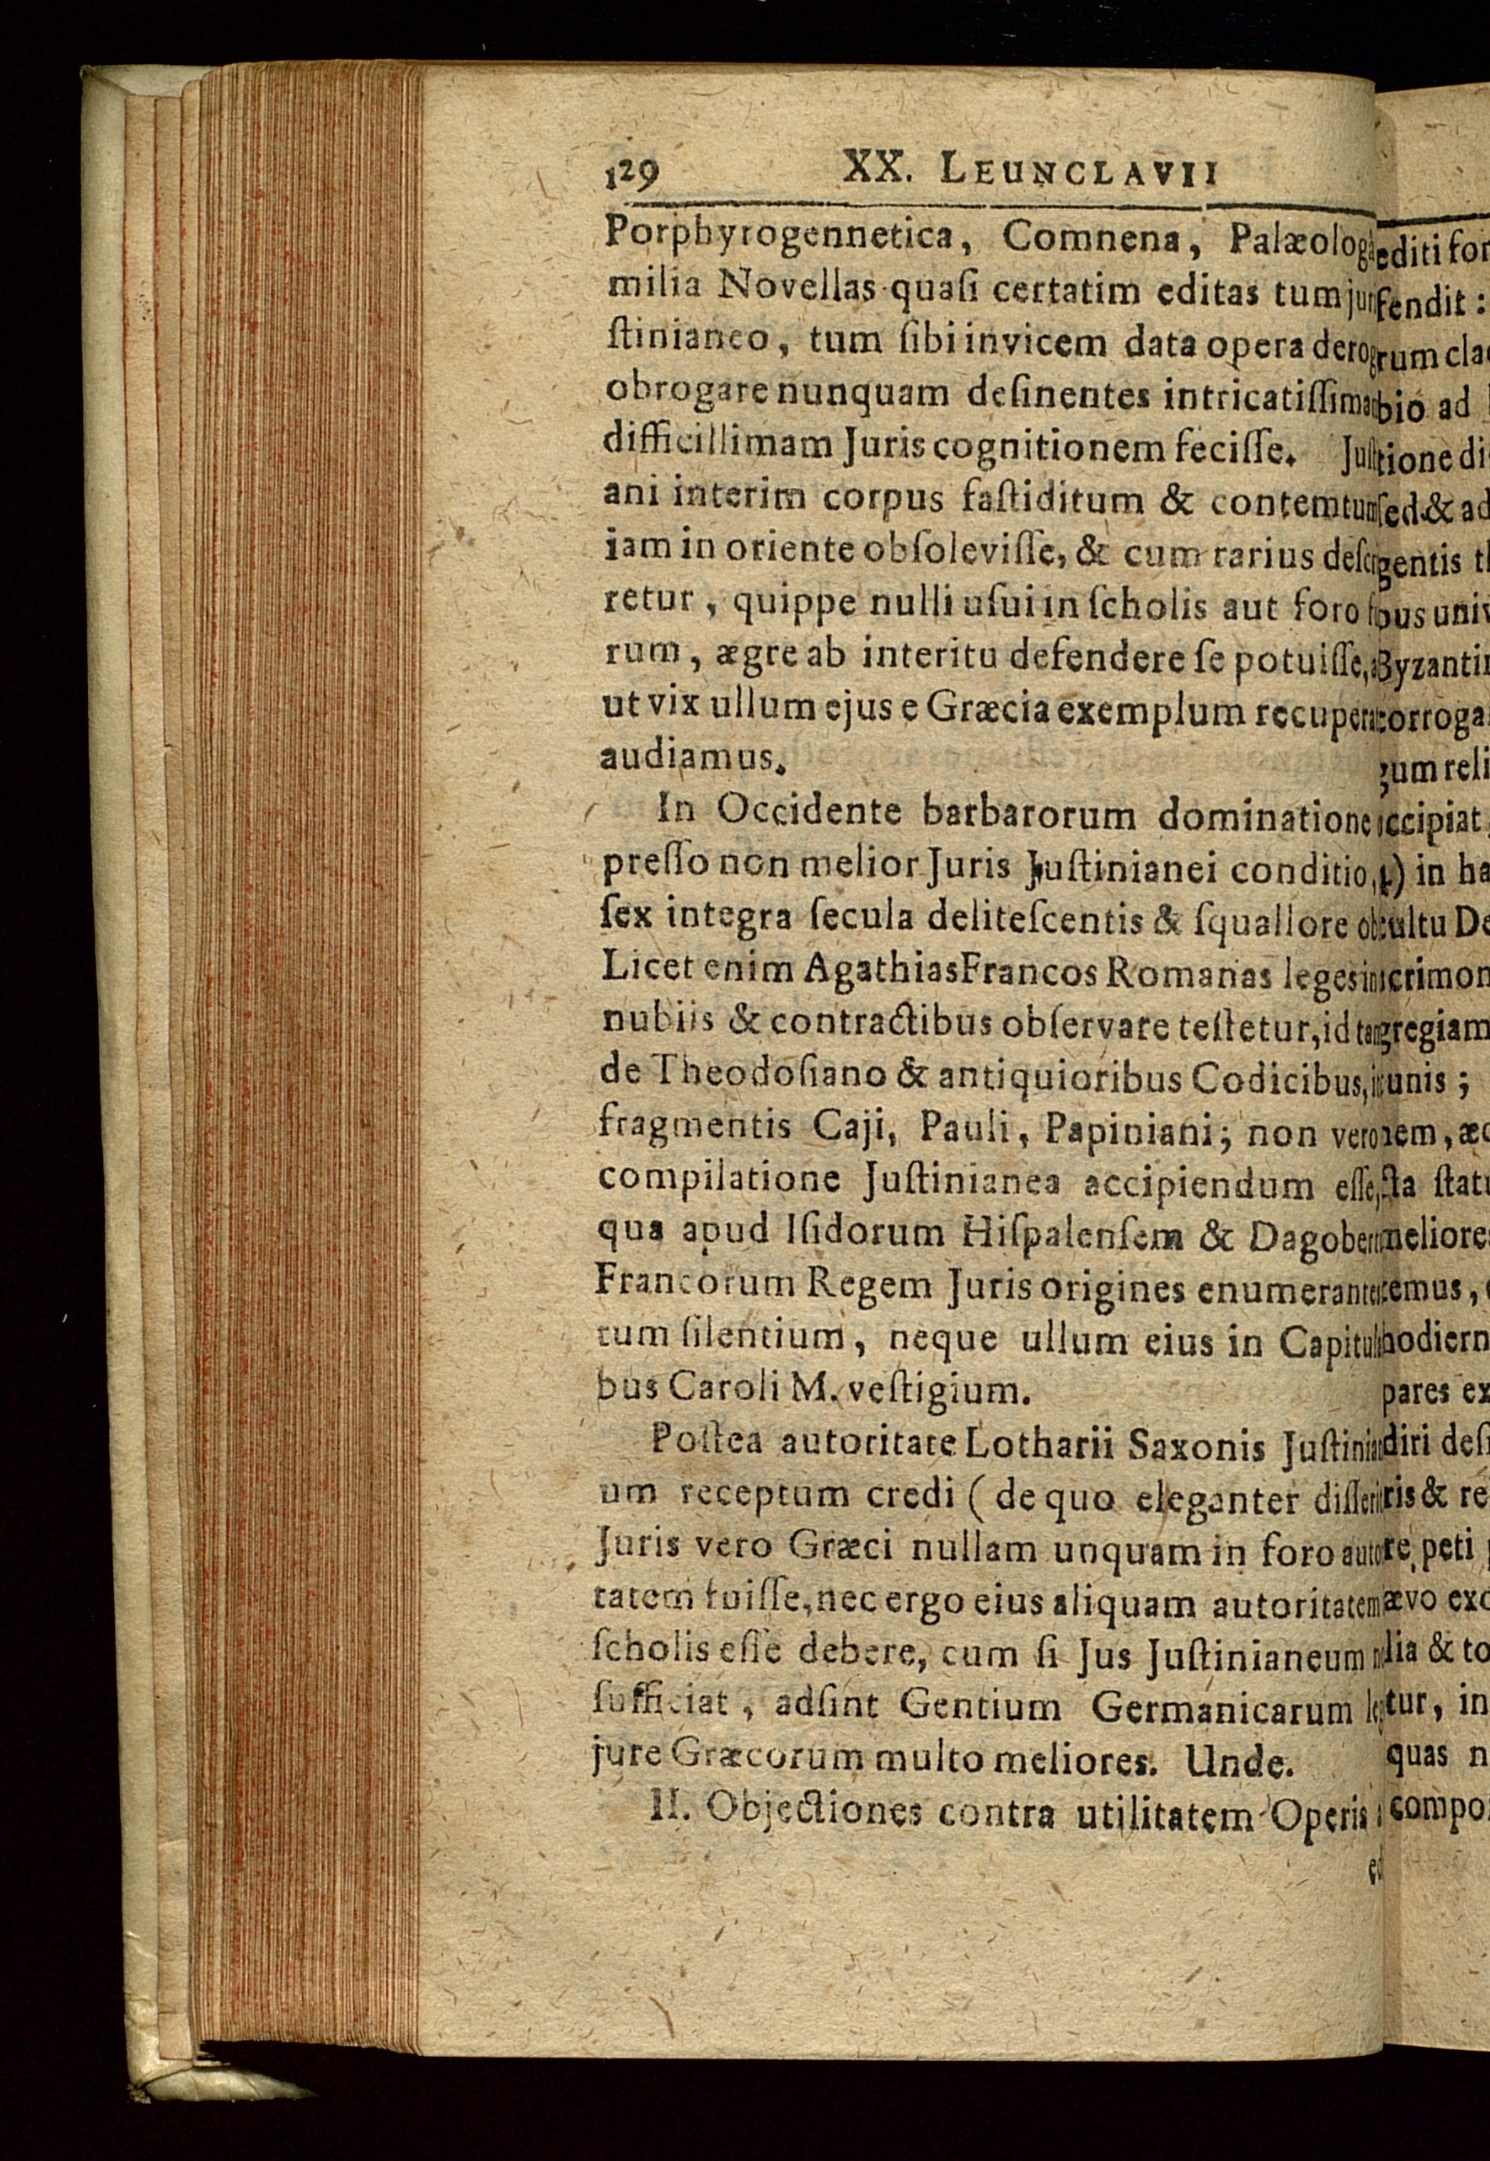 129 XX. LEUNCLAVII
Porphyrogennetica, Comnena, Palæolog
milia Novellas quaſi certatim editas tum
ſtinianeo, tum ſibi invicem data opera
obrogare nunquam deſinentes
difficillimam Juris cognitionem feciſſe.
ani interim corpus faſtiditum & contemtum
iam in oriente obſoleviſſe, & cum rarius
retur, quippe nulli uſui in ſcholis aut foro
rum, ægre ab interitu defendere ſe potuiſſe,
ut vix ullum ejus e Græcia exemplum
audiamus.
In Occidente barbarorum dominatione
preſſo non melior Juris Juſtinianei conditio,
ſex integra ſecula deliteſcentis & ſquallore
Licet enim Agathias Francos Romanas leges
nubiis & contractibus obſervare teſtetur, id
de Theodoſiano & antiquioribus Codicibus,
fragmentis Caji, Pauli, Papiniani; non vero
compilatione Juſtinianea accipiendum eſſe,
qua apud Iſidorum Hiſpalenſem &
Francorum Regem Juris origines
tum ſilentium, neque ullum eius in
bus Caroli M. veſtigium.
Poſtea autoritate Lotharii Saxonis
um receptum credi ( de quo eleganter
Juris vero Græci nullam unquam in foro
tatem fuiſſe, nec ergo eius aliquam autoritatem
ſcholis eſſe debere, cum ſi Jus Juſtinianeum
ſufficiat, adſint Gentium Germanicarum
jure Græcorum multo meliores. Unde.
II. Objectiones contra utilitatem Operis
editi
fendit:
rum
bio ad
tione
ſed &
gentis
bus
Byzanti
corroga
gum reli
ccipiat
) in
cultu
gregiam
unis;
nem,
cta
meliores
emus,
hodiern
pares
diri
ris &
re peti
ævo
lia &
tur, in
quas
compo